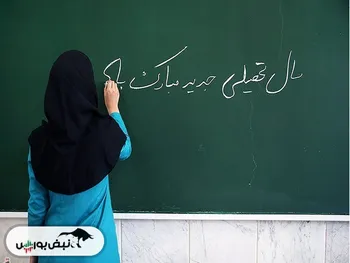 سال تحصیلی جدید مبارک باد
نبض بورس